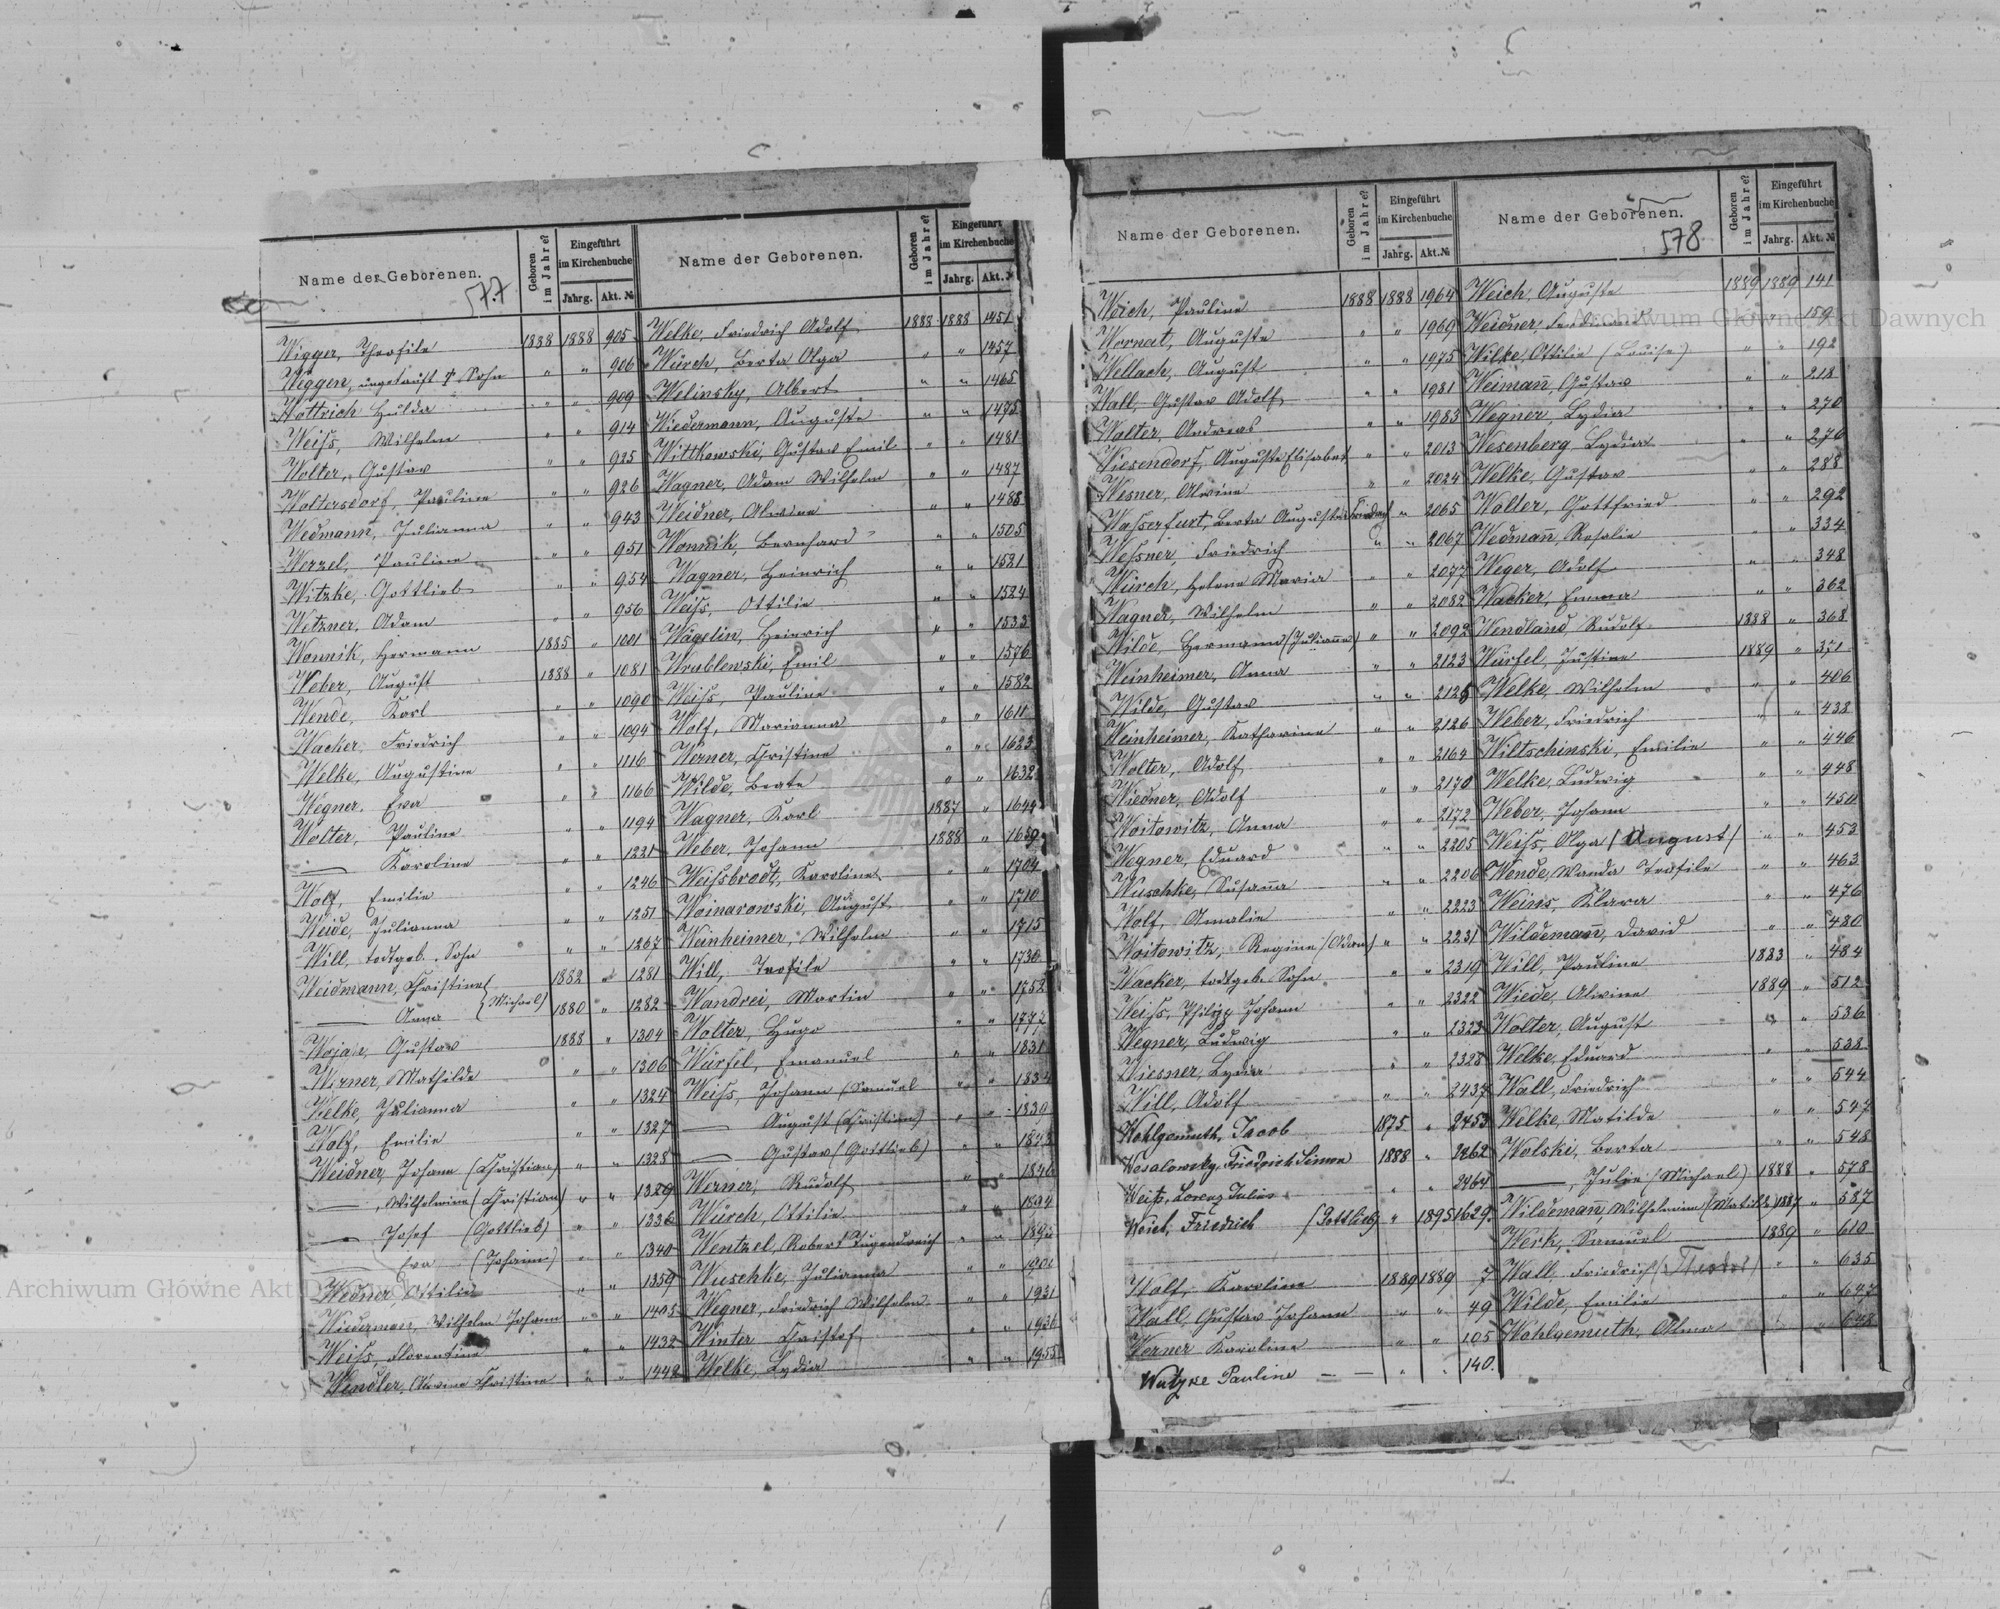 Name der Geborenen.
577
Geboren im Jahre?
Eingeführt im Kirchenbuche
Jahrg. Akt. №
Wigger, Theofile 1888 1888 905
Wiggert, ungetauft † Sohn " " 906
Wottrich Hulda " " 909
Weiß, Wilhelm " " 914
Wolter, Gustav " " 925
Woltersdorf, Pauline " " 926
Wedmann, Julianna " " 943
Wenzel, Pauline " " 951
Witzke, Gottlieb " " 954
Wetzner, Adam " " 956
Wonnik, Hermann 1885 " 1001
Weber, August 1888 " 1081
Wende, Karl " " 1090
Wacker, Friedrich " " 1094
Welke, Augustine " " 1116
Wegner, Eva " " 1166
Wolter, Pauline " " 1194
— Karoline " " 1221
Wolz, Emilie " " 1246
Weide, Julianna " " 1251
Will, todtgeb. Sohn " " 1267
Weidmann, Christine 1882 " 1281
— Anna (Michael) 1880 " 1282
Gustav 1888 " 1304
Werner, Mathilde " " 1306
Welke, Julianna " " 1324
Wolz, Emilie " " 1327
Weidner, Johann (Christian) " " 1328
—, Wilhelmine (Christian) " " 1329
— Josef (Gottlieb) " " 1336
— Eva (Johann) " " 1340
Weidner, Ottilie " " 1359
Wiederman, Wilhelm Johann " " 1405
Weiß, Florentine " " 1432
Wendler, Alwine Christine " " 1442
Name der Geborenen.
Geboren im Jahre?
Eingeführt im Kirchenbuche
Jahrg. Akt. №
Welke, Friedrich Adolf 1888 1888 1451
Würch, Berta Olga " " 1457
Welinsky, Albert " " 1465
Wiedermann, Auguste " " 1475
Wittkowski, Gustav Emil " " 1481
Wagner, Adam Wilhelm " " 1487
Weidner, Alwine " " 1488
Wonnik, Bernhard " " 1505
Wagner, Heinrich " " 1521
Weiß, Ottilie " " 1524
Wägelin, Heinrich " " 1533
Wrublewski, Emil " " 1576
Weiß, Pauline " " 1582
Wolf, Marianna " " 1611
Werner, Christine " " 1623
Wilde, Beate " " 1632
Wagner, Karl 1887 " 1644
Weber, Johann 1888 " 1659
Weißbrodt, Karoline " " 1704
Woinarowski, August " " 1710
Weinheimer, Wilhelm " " 1715
Will, Teofile " " 1730
Wandrei, Martin " " 1752
Wolter, Hugo " " 1777
Würfel, Emanuel " " 1831
Weiß, Johann (Samuel " " 1834
— August (Christian) " "
— Gustav (Gottlieb) " "
Werner, Rudolf " " 1846
Würch, Ottilie " " 1894
Wentzel, Robert Tugendreich " "
Wuschke, Julianna " " 1900
Wegner, Friedrich Wilhelm " " 1931
Winter Christof " " 1936
Welke, Lydia " " 1955
Name der Geborenen.
Geboren im Jahre?
Eingeführt im Kirchenbuche
Jahrg. Akt. №
Woich, Pauline 1888 1888 1964
Wornat, Auguste " " 1969
Wellach, August " " 1975
Wall, Gustav Adolf " " 1981
Walter, Andreas " " 1983
Wiesendorf, Auguste Elisabet " " 2013
Wesner, Alwine " " 2024
Wasserfurt, Berta Auguste Friedrich " 2065
Weßner, Friedrich " " 2067
Würch, Helene Maria " " 2077
Wagner, Wilhelm " " 2082
Wilde, Hermann (Julianne) " " 2092
Weinheimer, Anna " " 2123
Wilde, Gustav " " 2125
Weinheimer, Katharine " " 2126
Wolter, Adolf " " 2164
Wiedner, Adolf " " 2170
Woitowitz, Anna " " 2172
Wegner, Eduard " " 2205
Wuschke, Susanna " " 2206
Wolf, Amalie " " 2223
Woitowitz, Regine (Adam) " " 2231
Wacker, todtgeb Sohn " " 2319
Weiß, Philipp Johann " " 2322
Wegner, Ludwig " " 2323
Wiesner, Lydia " " 2328
Will, Adolf " " 2437
Wohlgemuth, Jacob 1875 " 2453
Wesalowsky, Friedrich Simon 1888 " 2462
Weiß, Lorenz Julius " " 2464
Weich, Friedrich (Gottlieb) " 1895 1629
Wolf, Karoline 1889 1889 7
Wall, Gustav Johann " " 49
Werner Karoline " " 105
Watzke Pauline — — " " 140.
Name der Geborenen.
578
Geboren im Jahre?
Eingeführt im Kirchenbuche
Jahrg. Akt. №
Weich, Auguste 1889 1889 141
Weidner, Ferdinand " " 159
Wilke, Ottilie (Louise) " " 192
Weimañ, Gustav " " 218
Wegner, Lydia " " 270
Wesenberg, Lydia " " 276
Welke, Gustav " " 288
Walter, Gottfried " " 292
Wedmañ, Rosalie " " 334
Weger, Adolf " " 348
Wacker, Emma " " 362
Wendland, Rudolf 1888 " 368
Würfel, Justine 1889 " 371
Welke, Wilhelm " " 406
Weber, Friedrich " " 438
Wiltschinski, Emilie " " 446
Welke, Ludwig " " 448
Weber, Johann " " 450
Weiß, Olga (August) " " 453
Wende, Wanda Teofile " " 463
Weins, Klara " " 476
Wildemañ, David " " 480
Will, Pauline 1883 " 484
Wiede, Alwine 1889 " 512
Wolter, August " " 536
Welke, Eduard " " 538
Wall, Friedrich " " 544
Welke, Matilde " " 547
Wolski, Berta " " 548
—, Julie (Michael) 1888 " 578
Wildemañ, Wilhelmine (Matilde) 1887 " 587
Werk, Samuel 1889 " 610
Wall, Friedrich (Theodor) " " 635
Wilde, Emilie " " 647
Wohlgemuth, Alma " " 648
Archiwum Główne Akt Dawnych
Archiwum Główne Akt Dawnych